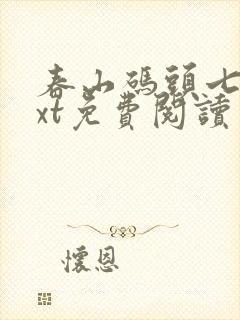 春山碼頭七
xt免費閱讀
懷恩